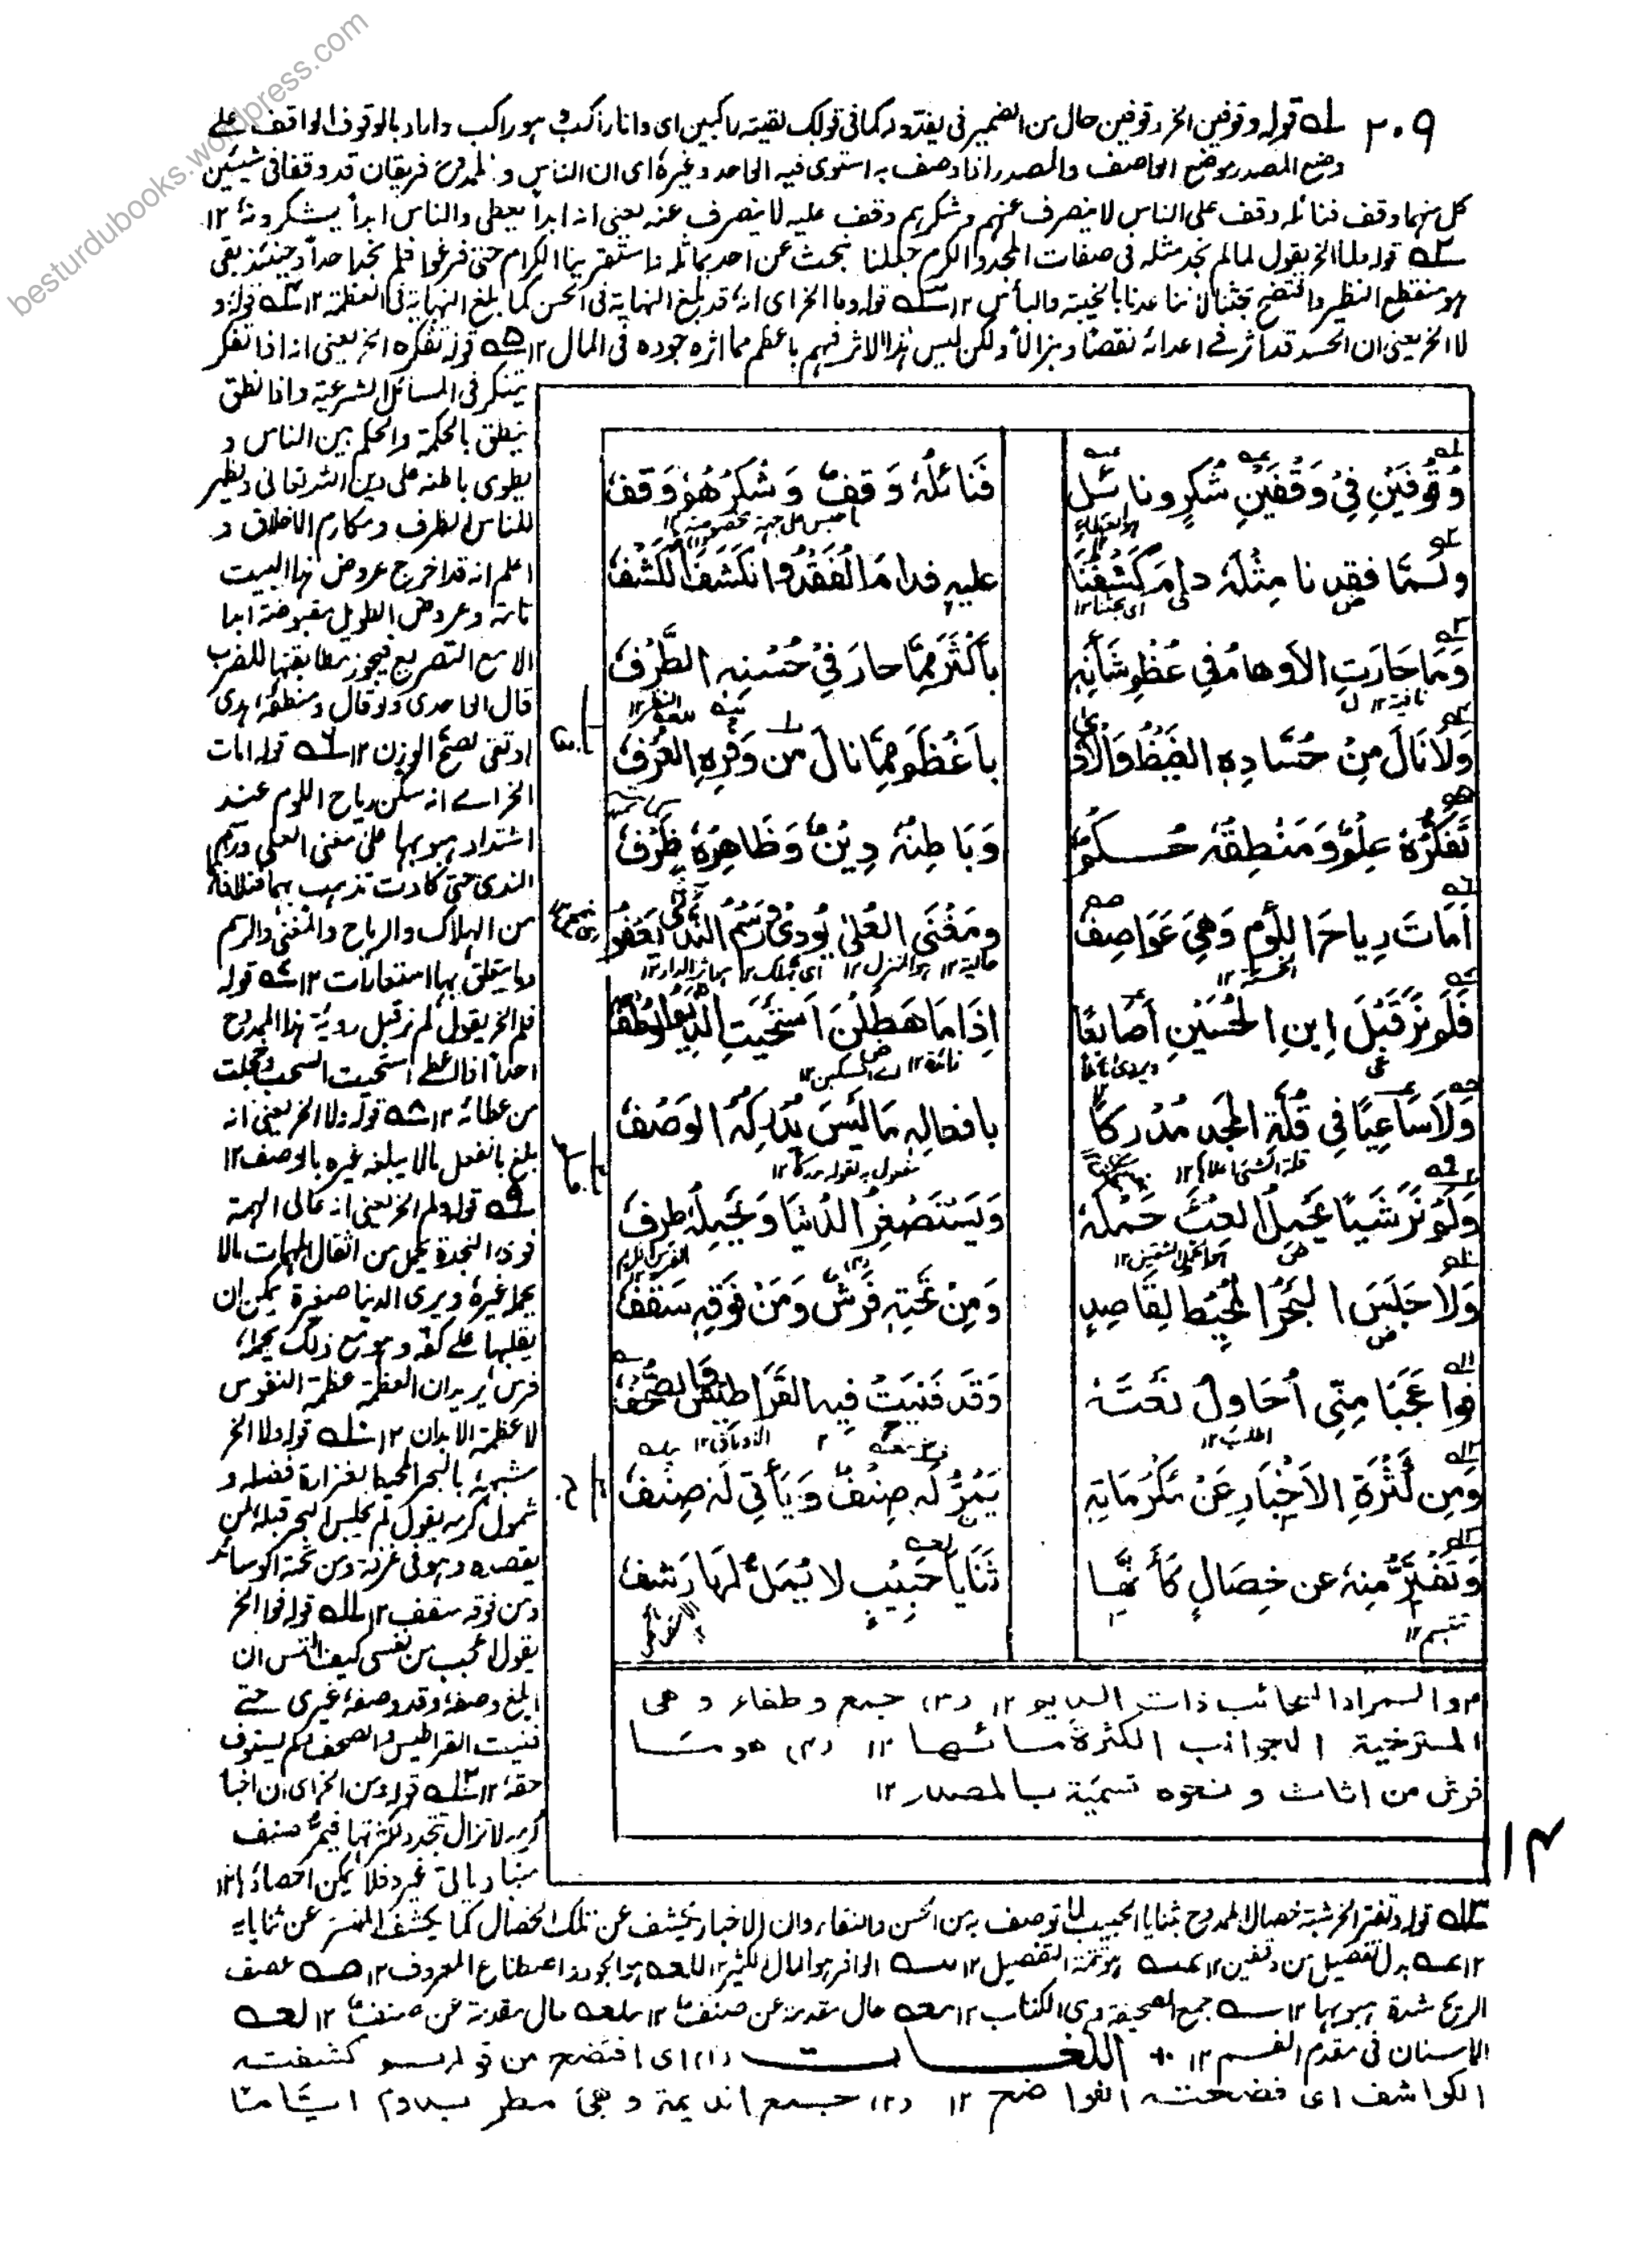 besturdubooks.wordpress.com
٢٠٩
له قوله وقوفين الخ وقوفين حال من الضمير فى يفدونه كما فى قولك لقيته راكبين اى وانا راكب وهو راكب واراد بالوقوف الواقف على
وضع المصدر موضع الواصف والمصدر اذا وصف به استوى فيه الواحد وغيره اى ان الناس والممدوح فريقان قد وقفا فى شيئين
كل منهما وقف فنائله وقف على الناس لا ينصرف عنهم وشكرهم وقف عليه لا ينصرف عنه يعنى انه ابدا يعطى والناس ابدا يشكرونه ١٢
قوله ولما الخ يقول لما لم نجد مثله فى صفات المجد والكرم جعلنا نبحث عن احد يماثله فاستقرينا الكرام حتى فرغوا فلم نجد احدا وحينئذ بقى
هو منقطع النظير وافتضح بحثنا لاننا عدنا بالخيبة واليأس ١٢ قوله وما الخ اى انه قد بلغ النهاية فى الحسن كما بلغ النهاية فى العظمة ١٢ قوله و
لا الخ يعنى ان الحسد قد اثر فى اعدائه نقصا وهزالا ولكن ليس هذا الاثر فيهم باعظم مما اثره جوده فى المال ١٢ قوله تفكره الخ يعنى انه اذا تفكر
يتفكر فى المسائل الشرعية واذا نطق
ينطق بالحكمة والحكم بين الناس و
يطوى باطنه على دين الله تعالى ويظهر
للناس الظرف ومكارم الاخلاق و
اعلم انه قد اخرج عروض هذا البيت
تامة وعروض الطويل مقبوضة ابدا
الا مع التصريع فيجوز مطابقتها للضرب
قال الواحدى ولو قال ومنطقه هدى
او تقى لصح الوزن ١٢ قوله امات
الخ اى انه سكن رياح اللوم عند
اشتداد هبوبها على مغنى العلى ورسم
الندى حتى كادت تذهب بهما
من الهلاك والرياح والمغنى والرسم
وما يتعلق بها استعارات ١٢ قوله
فلم الخ يقول لم نر قبل روية هذا الممدوح
احدا اذا اعطى استحيت السحب وخجلت
من عطائه ١٢ قوله ولا الخ يعنى انه
بلغ بالفعل ما لا يبلغه غيره بالوصف ١٢
قوله ولم الخ يعنى انه عالى الهمة
قوى النجدة يحمل من اثقال المهمات ما لا
يحمله غيره ويرى الدنيا صغيرة يمكن ان
يقلبها على كفه وهو مع ذلك يحمله
فرس يريد ان العظمة عظمة النفوس
لا عظمة الابدان ١٢ قوله ولا الخ
شبهه بالبحر المحيط لغزارة فضله و
شمول كرمه يقول لم يجلس البحر قبله لمن
يقصده وهو فى غرفة ومن تحته الوسائد
ومن فوقه سقف ١٢ قوله فوا الخ
يقول اعجب من نفسى كيف التمس ان
ابلغ وصفه وقد وصفه غيرى حتى
فنيت القراطيس والصحف ولم يستوف
حقه ١٢ قوله ومن الخ اى ان اخبار
كرمه لا تزال تتجدد لكثرتها فيمر صنف
منها وياتى غيره فلا يمكن احصاؤها ١٢
وُقُوفَيْنِ فِيْ وَقْفَيْنِ شُكْرٍ ونائلٍ فَنَائلُهٗ وَقفٌ وَشُكْرُهُمْ وَقفُ
ولمّا فقدنا مِثْلَهٗ دامَ كَشْفُنَا عليهِ فدامَ الفَقْدُ وانكَشَفَ الكَشْفُ
وَمَا حَارَتِ الأوهامُ في عُظْمِ شَأنِهٖ بأكْثَرَ مِمّا حارَ فِيْ حُسْنِهِ الطَّرْفُ
وَلَا نَالَ مِنْ حُسّادِهِ الغَيْظُ وَالأذٰى بأعْظَمَ مِمّا نالَ من وَفْرِهِ العُرْفُ
تَفَكُّرُهٗ عِلْمٌ وَمَنْطِقُهٗ حُكْمٌ وَبَاطِنُهٗ دِيْنٌ وَظَاهِرُهٗ ظَرْفُ
أمَاتَ رِياحَ اللُّؤْمِ وَهيَ عَوَاصِفٌ ومَغْنَى العُلٰى يُودِيْ ورَسْمُ النَّدٰى يَعْفُو
فَلَم نَرَ قَبْلَ ابنِ الحُسَيْنِ أصَابِعًا إذَا مَا هَطَلْنَ اسْتَحْيَتِ الدِّيَمُ الوُطْفُ
وَلَا سَاعِيًا في قُلّةِ المَجدِ مُدْرِكًا بأفعالِهٖ مَا لَيْسَ يُدْرِكُهُ الوَصْفُ
وَلَمْ نَرَ شَيئًا يَحْمِلُ العِبْءَ حَمْلَهٗ وَيَسْتَصْغِرُ الدُّنْيَا وَيَحْمِلُهٗ طِرْفُ
وَلَا جَلَسَ البَحْرُ المُحِيْطُ لِقَاصِدٍ وَمِنْ تَحْتِهٖ فَرْشٌ وَمِنْ فَوْقِهٖ سَقْفُ
فوا عَجَبَا مِنِّي أُحَاوِلُ نَعْتَهٗ وَقَد فَنِيَتْ فِيهِ القَرَاطِيْسُ وَالصُّحْفُ
وَمِن كَثْرَةِ الأَخْبَارِ عَنْ مَكْرُمَاتِهٖ يَمُرُّ لَهٗ صِنْفٌ وَيَأتِي لَهٗ صِنْفُ
وَتَفْتَرُّ مِنهُ عن خِصَالٍ كَأنّها ثَنَايَا حَبِيْبٍ لا يُمَلُّ لَهَا رَشْفُ
والمراد السحائب ذات الديم ١٢ (٣) جمع وطفاء وهى
المسترخية الجوانب لكثرة مائها ١٢ (٤) هو ما
فرش من اثاث ونحوه تسمية بالمصدر ١٢
قوله وتفتر الخ شبه خصال الممدوح بثنايا الحبيب لما توصف به من الحسن والنقاء وان الاخبار تكشف عن تلك الخصال كما يكشف المفتر عن ثناياه
١٢ بدل تفصيل من وقفين ١٢ هو تتمة التفصيل ١٢ الوافر هو المال الكثير ١٢ هو الجود واصطناع المعروف ١٢ عصف
الريح شدة هبوبها ١٢ جمع الصحيفة وهى الكتاب ١٢ حال مقدمة عن صنف ١٢ حال مقدمة عن صنف ١٢
الاسنان فى مقدم الفم ١٢ اللغات (١) اى افتضح من قولهم كشفته
الكواشف اى فضحته الفواضح ١٢ (٢) جمع الديمة وهى مطر يدوم اياما
١٣